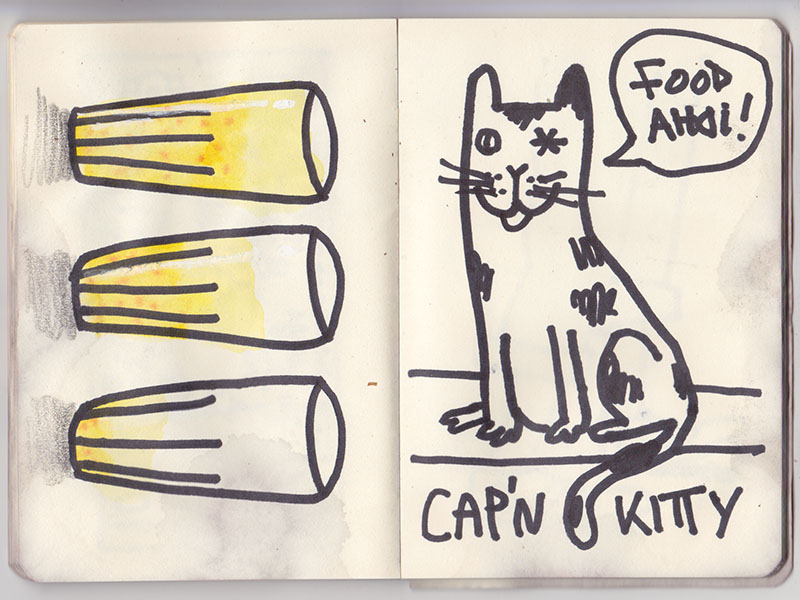 FOOD
AHOi!
CAP'N KITTY